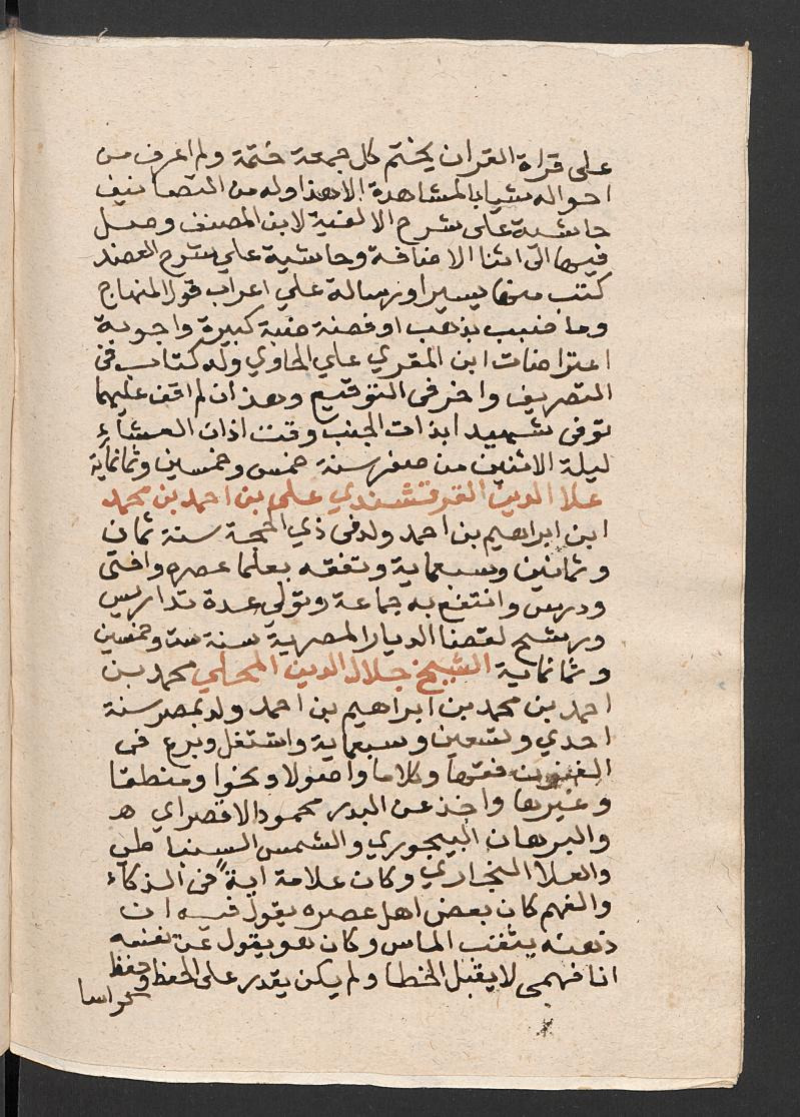 على قراة القران يختم كل جمعة ختمة ولم اعرف من
احواله شيا بالمشاهدة الا هذا وله من التصانيف
حاشية على شرح الالفية لابن المصنف وصل
فيها الى اثنا الاضافة وحاشية علي شرح العضد
كتب منها يسيرا ورسالة علي اعراب قول المنهاج
وما ضبب بذهب او فضة ضبة كبيرة واجوبة
اعتراضات ابن المقري علي الحاوي وله كتاب في
التصريف واخر في التوقيع وهذان لم اقف عليهما
توفي شهيدا بذات الجنب وقت اذان العشاء
ليلة الاثنين من صفر سنة خمس وخمسين وثمانماية
علا الدين القرقشندي علي بن احمد بن محمد
ابن ابراهيم بن احمد ولد في ذي الحجة سنة ثمان
وثمانين وسبعماية وتفقه بعلما عصره وافتى
ودرس وانتفع به جماعة وتولي عدة تداريس
ورشح لقضا الديار المصرية سنة ست وخمسين
وثمانماية الشيخ جلال الدين المحلي محمد بن
احمد بن محمد بن ابراهيم بن احمد ولد بمصر سنة
احدي وتسعين وسبعماية واشتغل وبرع في
الفنون فقها وكلاما واصولا ونحوا ومنطقا
وغيرها واخذ عن البدر محمود الاقصراي ه
والبرهان البيجوري والشمس البسنباطي
والعلا البخاري وكان علامة اية في الذكاء
والفهم كان بعض اهل عصره يقول فيه ان
ذهنه يثقب الماس وكان هو يقول عن نفسه
انا فهمي لا يقبل الخطا ولم يكن يقدر على الحفظ وحفظ
كراسا